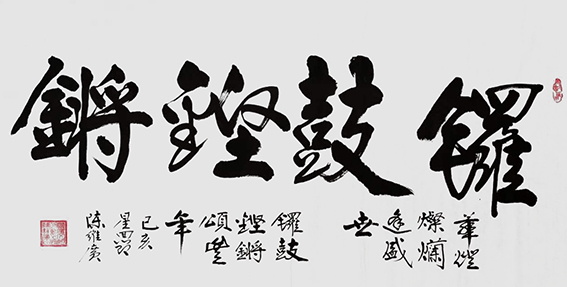 鑼鼓鏗鏘
華燈
燦爛
逢盛
世
鑼鼓
鏗鏘
頌豐
年
己亥
陳維廣